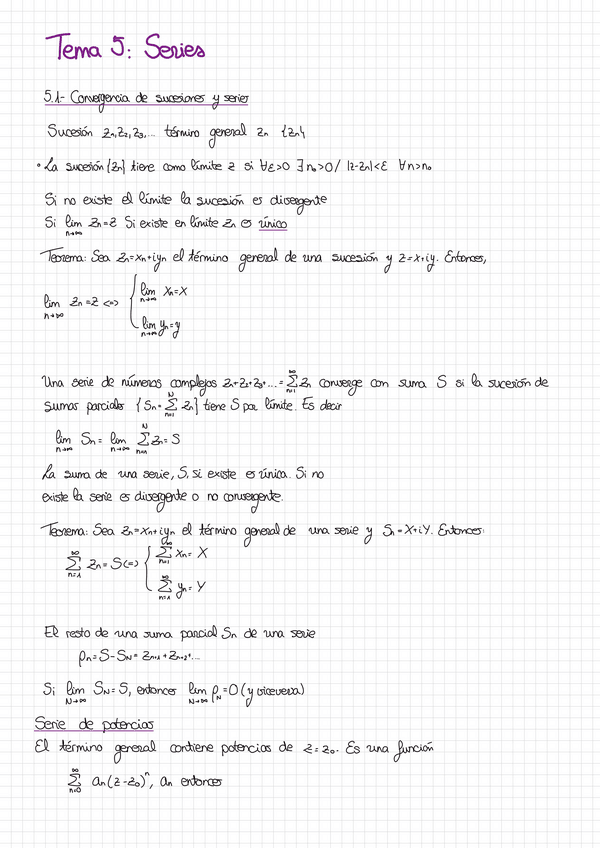 Tema 5: Series
5.1- Convergencia de sucesiones y series
Sucesión z₁,z₂,z₃,... término general zₙ {zₙ}
• La sucesión {zₙ} tiene como límite z si ∀ε>0 ∃ n₀>0 / |z-zₙ|<ε ∀n>n₀
Si no existe el límite la sucesión es divergente
Si lim zₙ=z Si existe en límite zₙ es único
n→∞
Teorema: Sea zₙ=xₙ+iyₙ el término general de una sucesión y z=x+iy. Entonces,
lim zₙ=z <=> { lim xₙ=x
n→∞ n→∞
lim yₙ=y
n→∞
Una serie de números complejos z₁+z₂+z₃+...= ∑_{n=1}^{∞} zₙ converge con suma S si la sucesión de
sumas parciales {Sₙ= ∑_{n=1}^{N} zₙ} tiene S por límite. Es decir
lim Sₙ= lim ∑_{n=1}^{N} zₙ= S
n→∞ n→∞
La suma de una serie, S, si existe es única. Si no
existe la serie es divergente o no convergente.
Teorema: Sea zₙ=xₙ+iyₙ el término general de una serie y Sₙ=X+iY. Entonces:
∑_{n=1}^{∞} zₙ=S <=> { ∑_{n=1}^{∞} xₙ= X
∑_{n=1}^{∞} yₙ= Y
El resto de una suma parcial Sₙ de una serie
ρₙ=S-S_N= zₙ₊₁+zₙ₊₂+...
Si lim S_N=S, entonces lim ρ_N=0 (y viceversa)
N→∞ N→∞
Serie de potencias
El término general contiene potencias de z=z₀. Es una función
∑_{n=0}^{∞} aₙ(z-z₀)ⁿ, aₙ entonces